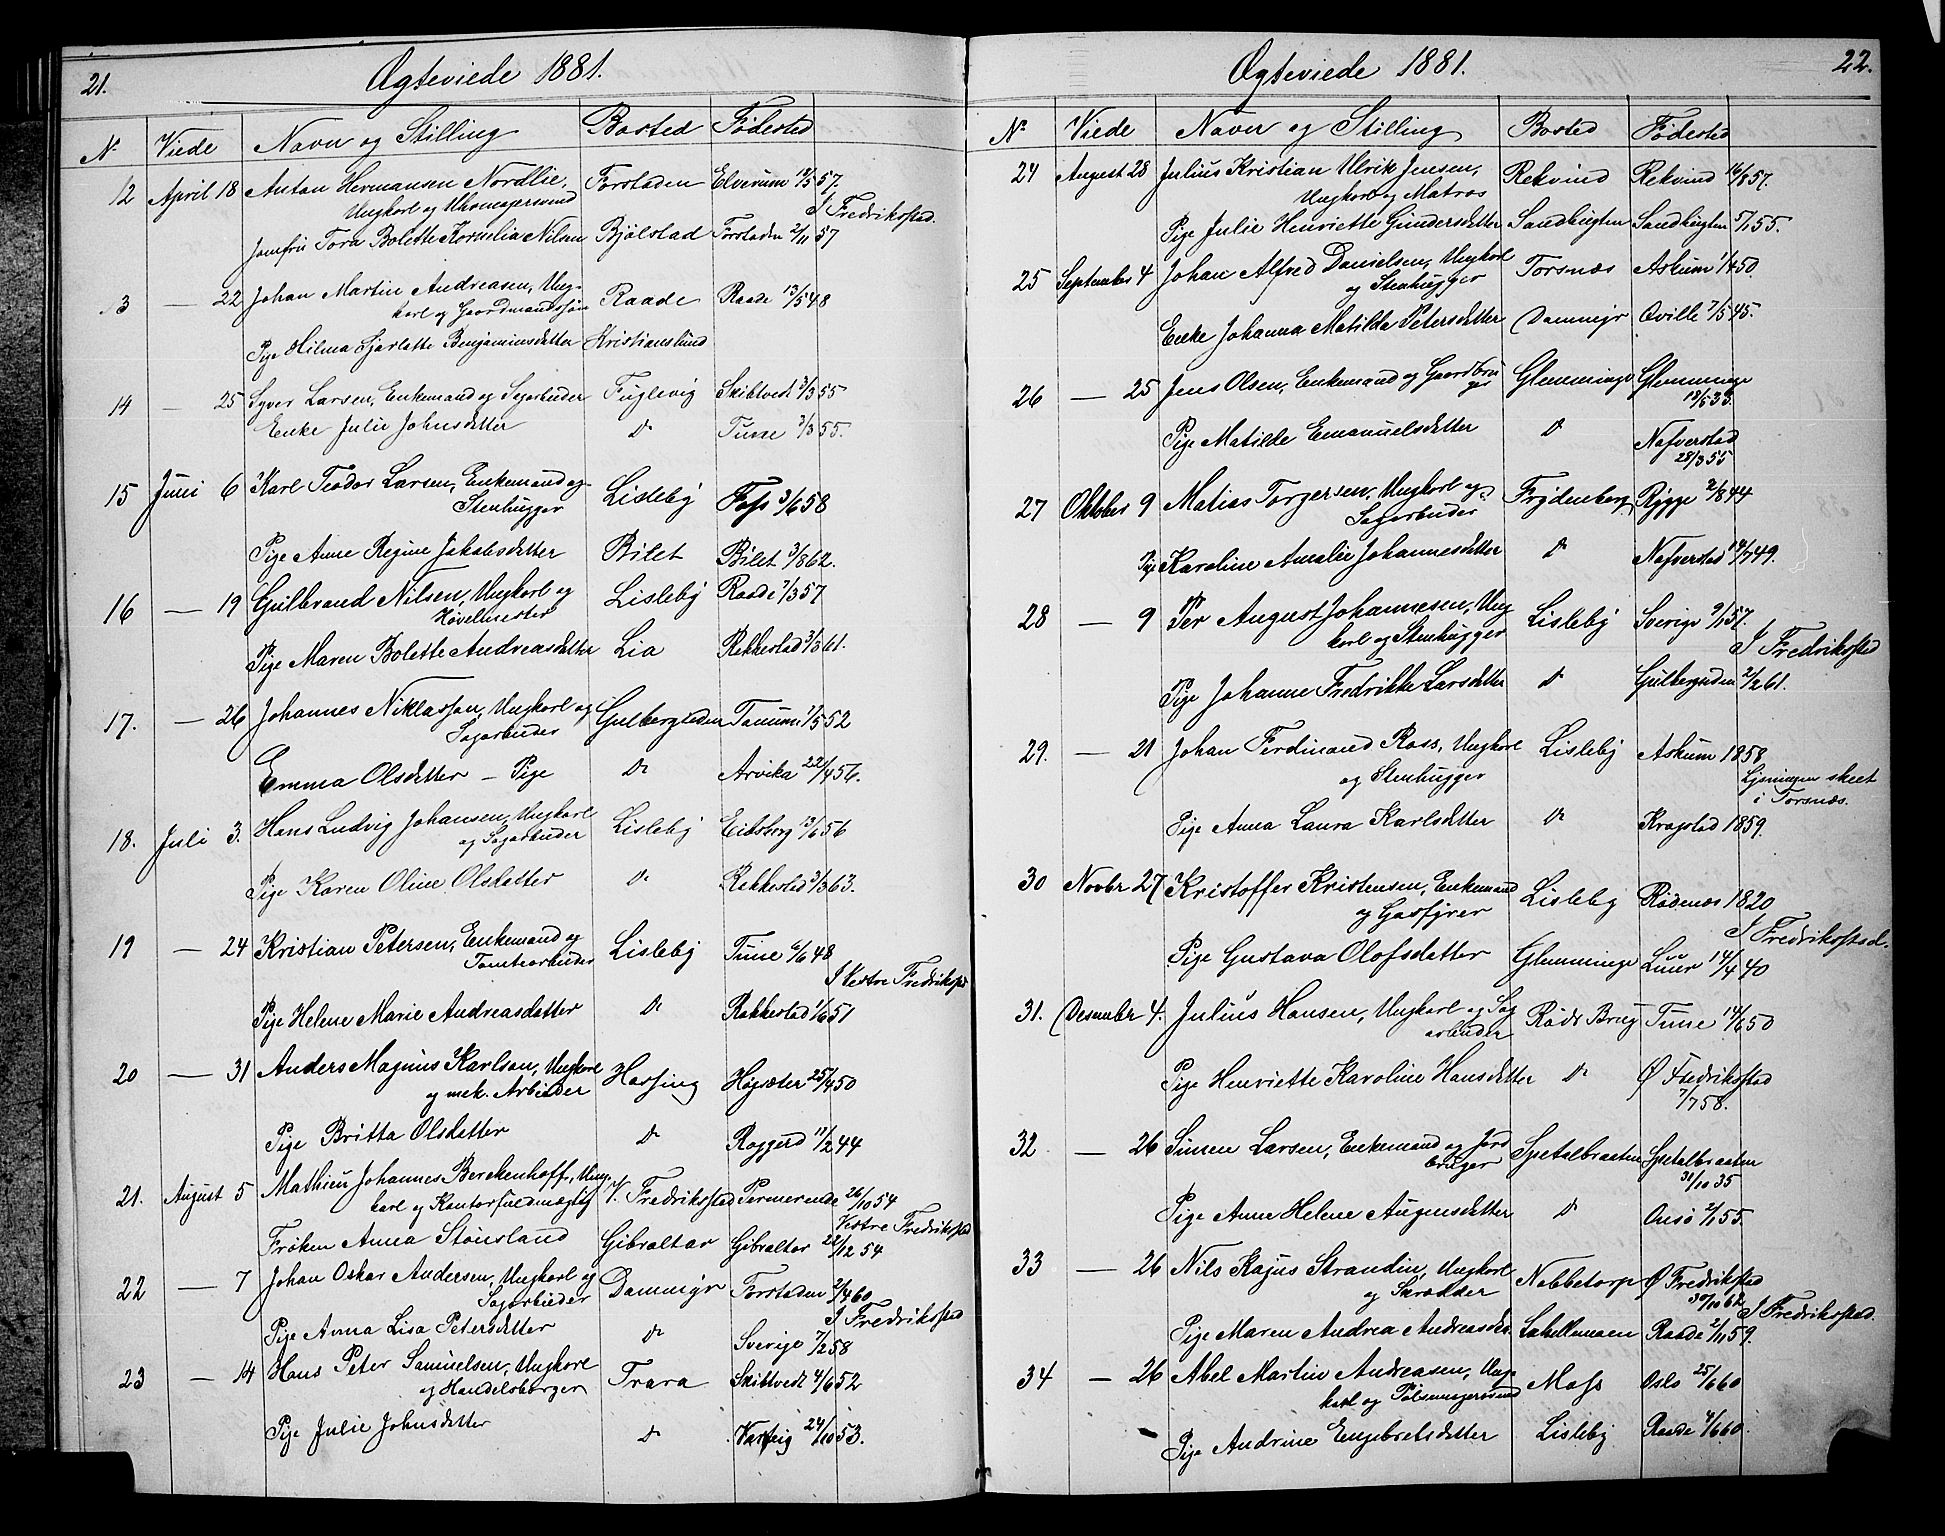 21.
Ægteviede 1881.
N.
Viede
Navn og Stilling
Bosted
Fødested
12 April 18 Anton Hermansen Nordlie, Forstaden Elverum 57.
Ungkarl og
I Fredriksstad.
Jomfru Tora Bolette Kornelia Nilsen Bjølstad Forstaden 2/11 57
13 — 22 Johan Martin Andreasen, Ung- Raade Raade 13/5 48
karl og Gaardmandssøn
Pige Hilma Sjarlotte Benjaminsdatter Kristianslund
14 — 25 Syver Larsen, Enkemand og Sagarbeider Fuglevig Skibtvedt 3/3 55
Enke Julie Johnsdatter Do Tune 2/3 55.
15 Juni 6 Karl Teodor Larsen, Enkemand og Lisleby Foss 3/6 58
Stenhugger
Pige Anne Regine Jakobsdatter Bilet Bilet 3/8 62.
16 — 19 Gulbrand Nilsen, Ungkarl og Lisleby Raade 2/3 57
Høvelmester
Pige Maren Bolette Andreasdatter Lia Rakkestad 3/3 61.
17. — 26 Johannes Niklasson, Ungkarl og Gulbergseden Tanum 1/5 52
Sagarbeider
Emma Olsdatter – Pige Do Arvika 22/4 56.
18. Juli 3. Hans Ludvig Johansen, Ungkarl Lisleby Eidsberg 13/6 56
og Sagarbeider
Pige Karen Oline Olsdatter Do Rakkestad 3/3 63.
19 — 24 Kristian Petersen, Enkemand og Lisleby Tune 6/6 48
Tomtearbeider
I Vestre Fredriksstad
Pige Helene Marie Andreasdatter Do Rakkestad 1/6 51
20 — 31 Anders Magnus Karlson, Ungkarl Hassing Høgsæter 25/4 50
og mek. Arbeider
Pige Britta Olsdatter Do Roggerd 17/2 44
21. August 5 Mathieu Johannes Berckenhoff, Ung- V. Fredriksstad Permerende 26/10 54
karl og Kontorfuldmægtig
Vestre Fredriksstad
Frøken Anna Stousland Gibraltar Gibraltar 22/12 54
22 — 7 Johan Oskar Andersen, Ungkarl og Dammyr Forstaden 2/4 60
Sagarbeider
I Fredriksstad
Pige Anna Lisa Petersdatter Do Sverige 7/2 58
23 — 14 Hans Peter Samuelsen, Ungkarl Trara Skibtvedt 4/6 52
og Handelsborger
Pige Julie Johnsdatter Do Varteig 24/10 53.
Ægteviede 1881.
22.
No
Viede
Navn og Stilling
Bosted
Fødested
24 August 28 Julius Kristian Ulrik Jensen, Rekvind Rekvind 16/8 57.
Ungkarl og Matros
Pige Julie Henriette Gundersdatter Sandbugten Sandbugten 5/1 55.
25 September 4 Johan Alfred Danielsen, Ungkarl Torsnæs Askum 1/4 50.
og Stenhugger
Enke Johanna Matilda Petersdatter Dammyr Qville 7/5 45.
26 — 25 Jens Olsen, Enkemand og Gaardbru Glemminge Glemminge
ger
18/5 33.
Pige Matilde Emanuelsdatter Do Nafverstad
28/3 55
27 Oktober 9 Matias Torgersen, Ungkarl og Frydenberg Rygge 2/8 44
Sagarbeider
Pige Karoline Amalie Johannesdatter Do Nafverstad 14/7 49.
28 — 9 Per August Johannesen, Ung Lisleby Sverige 9/1 57.
karl og Stenhugger
I Fredriksstad
Pige Johanne Fredrikke Larsdatter Do Gulbergseden 2/2 61.
29. — 21 Johan Ferdinand Ross, Ungkarl Lisleby Askum 1858
og Stenhugger
Lysningen skeet
i Torsnæs.
Pige Anna Laura Karlsdatter Do Kragstad 1859.
30 Novbr 27 Kristoffer Kristensen, Enkemand Lisleby Rødenæs 1820
og Gasfyrer
I Fredriksstad.
Pige Gustava Olofsdatter Glemminge Luur 14/4 40
31. Desember 4. Julius Hansen, Ungkarl og Sag Røds Brug Tune 14/6 50
arbeider
Pige Henriette Karoline Hansdatter Do Ø Fredriksstad
7/7 58.
32 — 26 Simen Larsen, Enkemand og Jord Spetalbraaten Spetalbraaten
bruger
31/10 35
Pige Anne Helene Augensdatter Do Onsø 2/1 55.
33 — 26 Nils Kajus Strandin, Ungkarl Nabbetorp Ø Fredriksstad
og Skrædder
30/10 62
I Fredriksstad.
Pige Maren Andrea Andreasdtr Labellmoen Raade 2/11 59.
34 — 26 Abel Martin Andreasen, Ung- Moss Oslo 25/6 60
karl og Pølsemagersvend
Pige Andrine Engebretsdatter Lisleby Raade 4/6 60.